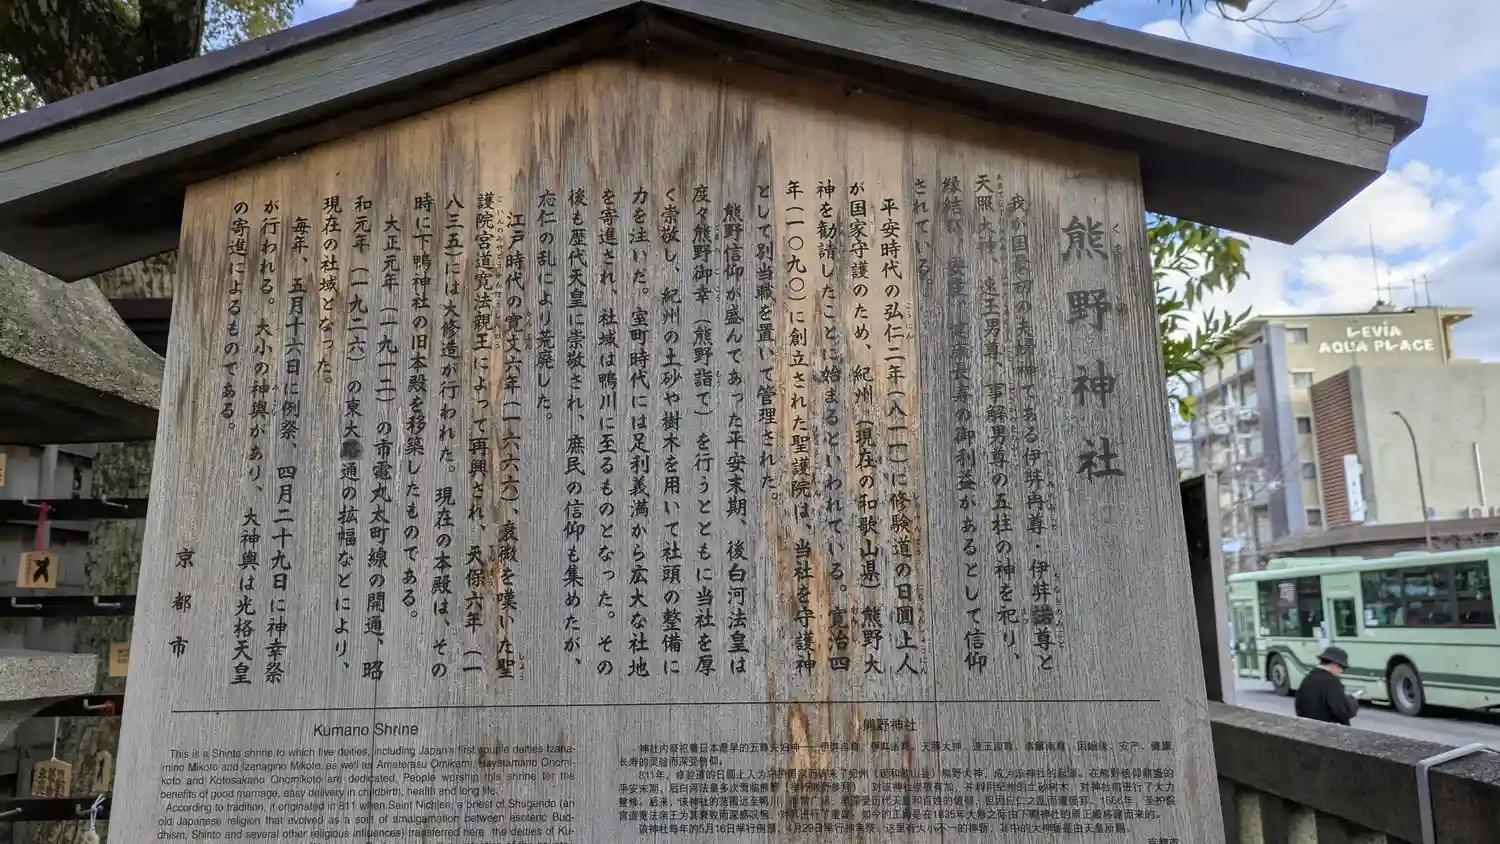 熊野神社
我が国最初の夫婦神である伊弉冉尊・伊弉諾尊と
天照大神、速玉男尊、事解男尊の五柱の神を祀り、
縁結び、安産、健康長寿の御利益があるとして信仰
されている。
平安時代の弘仁二年（八一一）に修験道の日圓上人
が国家守護のため、紀州（現在の和歌山県）熊野大
神を勧請したことに始まるといわれている。寛治四
年（一〇九〇）に創立された聖護院は、当社を守護神
として別当職を置いて管理された。
熊野信仰が盛んであった平安末期、後白河法皇は
度々熊野御幸（熊野詣て）を行うとともに当社を厚
く崇敬し、紀州の土砂や樹木を用いて社頭の整備に
力を注いだ。室町時代には足利義満から広大な社地
を寄進され、社域は鴨川に至るものとなった。その
後も歴代天皇に崇敬され、庶民の信仰も集めたが、
応仁の乱により荒廃した。
江戸時代の寛文六年（一六六六）、衰微を嘆いた聖
護院宮道寛法親王によって再興され、天保六年（一
八三五）には大修造が行われた。現在の本殿は、その
時に下鴨神社の旧本殿を移築したものである。
大正元年（一九一二）の市電丸太町線の開通、昭
和元年（一九二六）の東大路通の拡幅などにより、
現在の社域となった。
毎年、五月十六日に例祭、四月二十九日に神幸祭
が行われる。大小の神輿があり、大神輿は光格天皇
の寄進によるものである。
京都市
Kumano Shrine
This is a Shinto shrine to which five deities, including Japan's first couple deities Izana-
mino Mikoto and Izanagino Mikoto, as well as Amaterasu Omikami, Hayatamano Onomi-
koto and Kotosakano Onomikoto are dedicated. People worship this shrine for the
benefits of good marriage, easy delivery in childbirth, health and long life.
According to tradition, it originated in 811 when Saint Nichien, a priest of Shugendo (an
old Japanese religion that evolved as a sort of amalgamation between esoteric Bud-
dhism, Shinto and several other religious influences) transferred here the deities of Ku-
熊野神社
神社内祭祀着日本最早的五尊夫妇神
长寿的灵验而深受信仰。
811年，修验道的日圆上人为
该神社每年的5月16日举行例祭，4月29日举行神幸祭。这里有大小不一的神轿，其中的大神轿是由天皇所赐。
京都市
LEVIA
AQUA PLACE